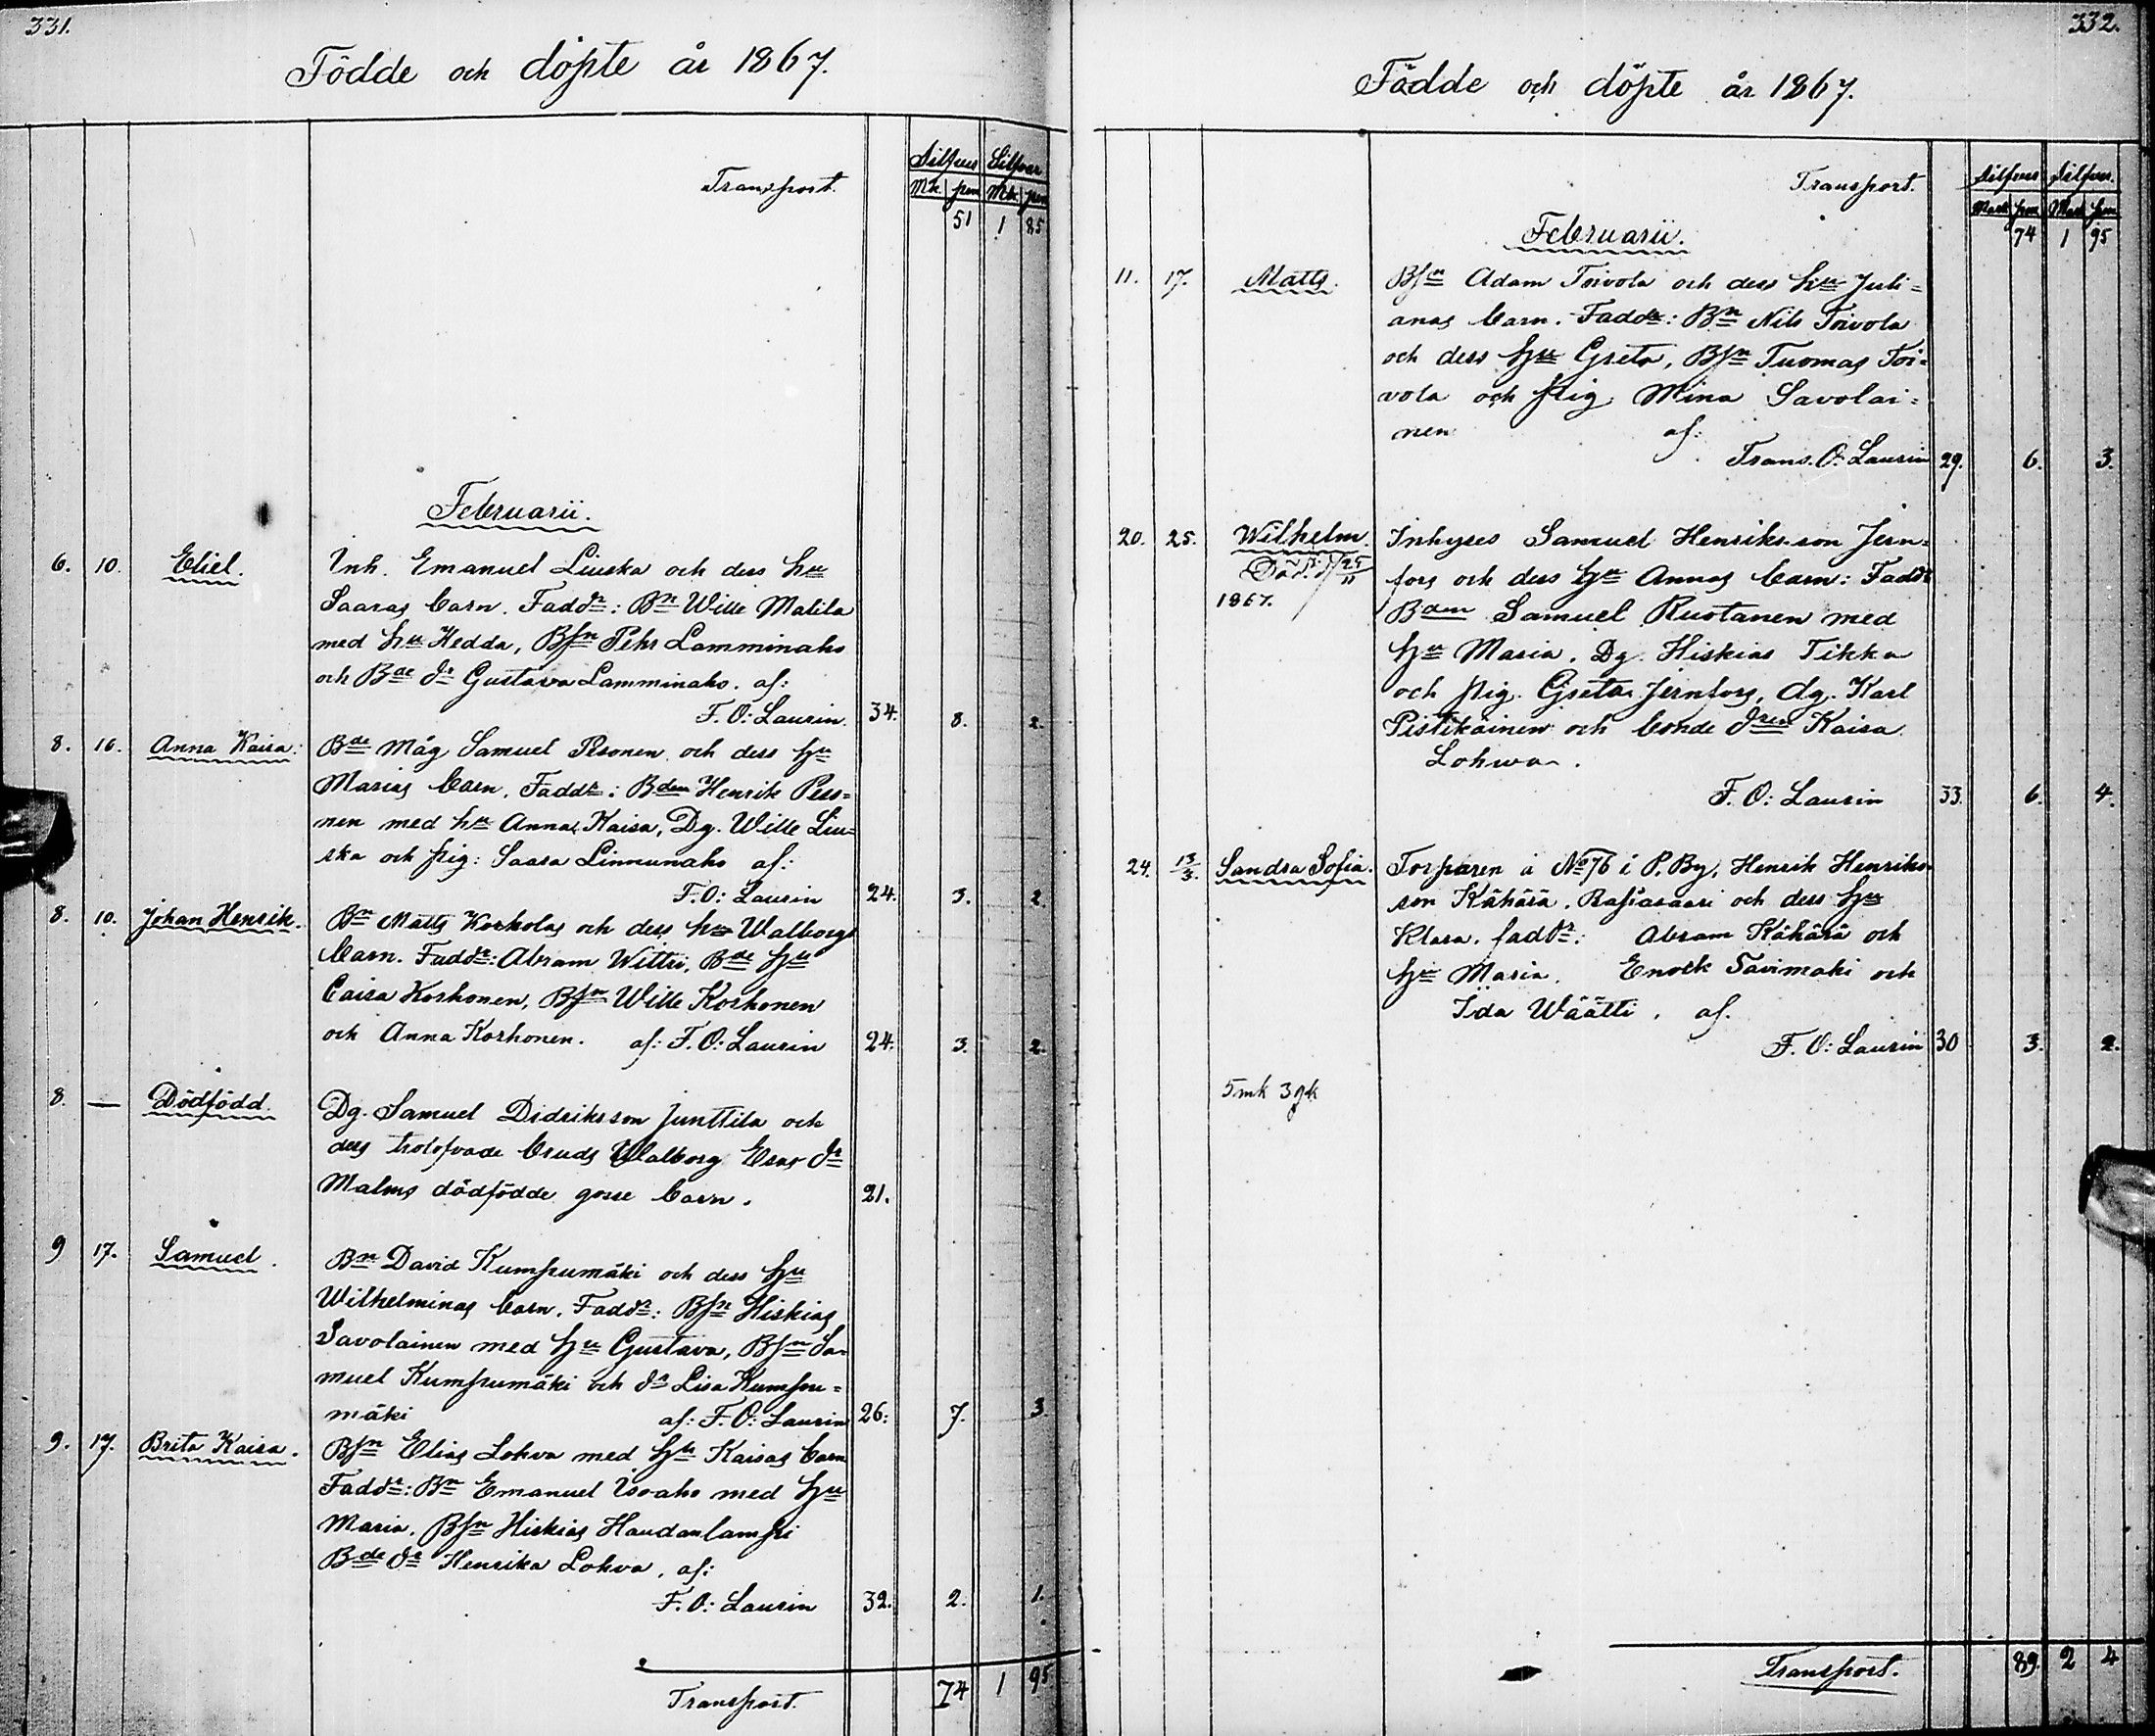 331.
Födde och döpte år 1867.
Transport.
Silfver Silfver
Mk. pen Mk. pen
51 1 85
Februarii.
6. 10. Eliel. Inh. Emanuel Liuska och dess hu
Saaras barn. Faddr: Bn Wille Matila
med hu Hedda, Bsn Pehr Lamminaho
och Bde dr Gustava Lamminaho. af:
F. O: Laurin. 34. 8. 2.
8. 16. Anna Kaisa: Bde måg Samuel Pesonen och dess hu
Marias barn. Faddr: Bdem Henrik Peso=
nen med hu Anna Kaisa, Dg. Wille Liu=
ska och pig: Saara Linnunaho af:
F. O: Laurin 24. 3. 2.
8. 10. Johan Henrik. Bn Matts Korholas och dess hu Walborgs
barn. Faddr: Abram Wittri, Bde hu
Caisa Korhonen, Bsn Wille Korhonen
och Anna Korhonen. af: F. O: Laurin 24. 3. 2.
8. — Dödfödd. Dg. Samuel Didriksson Junttila och
dess trolofvade bruds Walborg Esas dr
Malms dödfödde gosse barn. 21.
9 17. Samuel. Bn David Kumpumäki och dess hu
Wilhelminas barn. Faddr: Bsn Hiskias
Savolainen med hu Gustava, Bsn Sa=
muel Kumpumäki och dr Lisa Kumpu=
mäki af: F. O: Laurin 26: 7. 3.
9. 17. Brita Kaisa. Bsn Elias Lohva med hu Kaisas barn
Faddr: Bn Emanuel Isoaho med hu
Maria. Bsn Hiskias Haudanlampi
Bde dr Henrika Lohva. af:
F. O: Laurin 32. 2. 1.
Transport. 74 1 95
332.
Födde och döpte år 1867.
Transport.
Silfver Silfver.
Mark pen Mark pen
74 1 95
Februarii.
11. 17. Matts. Bsn Adam Toivola och dess hu Juli=
anas barn. Faddr: Bn Nils Toivola
och dess hu Greta, Bsn Tuomas Toi=
vola och pig Mina Savolai=
nen af:
Frans. O: Laurin 29. 6. 3.
20. 25. Wilhelm. Inhyses Samuel Henriksson Jern=
Död d 25/11 fors och dess hu Annas barn: Faddr
1867. Bdem Samuel Ruotanen med
hu Maria. Dg. Hiskias Tikka
och pig. Greta Jernfors, dg. Karl
Pistikäinen och bonde dren Kaisa
Lohva.
F. O: Laurin 33. 6. 4.
24. 13/3. Sandra Sofia. Torparen å No 76 i P. By, Henrik Henriks=
son Kähärä. och dess hu
Klara. faddr: Abram Kähärä och
hu Maria. Enock Savimäki och
Ida Wäätti. af.
F. O: Laurin 30 3. 2.
5mk 39k
Transport. 89. 2 4